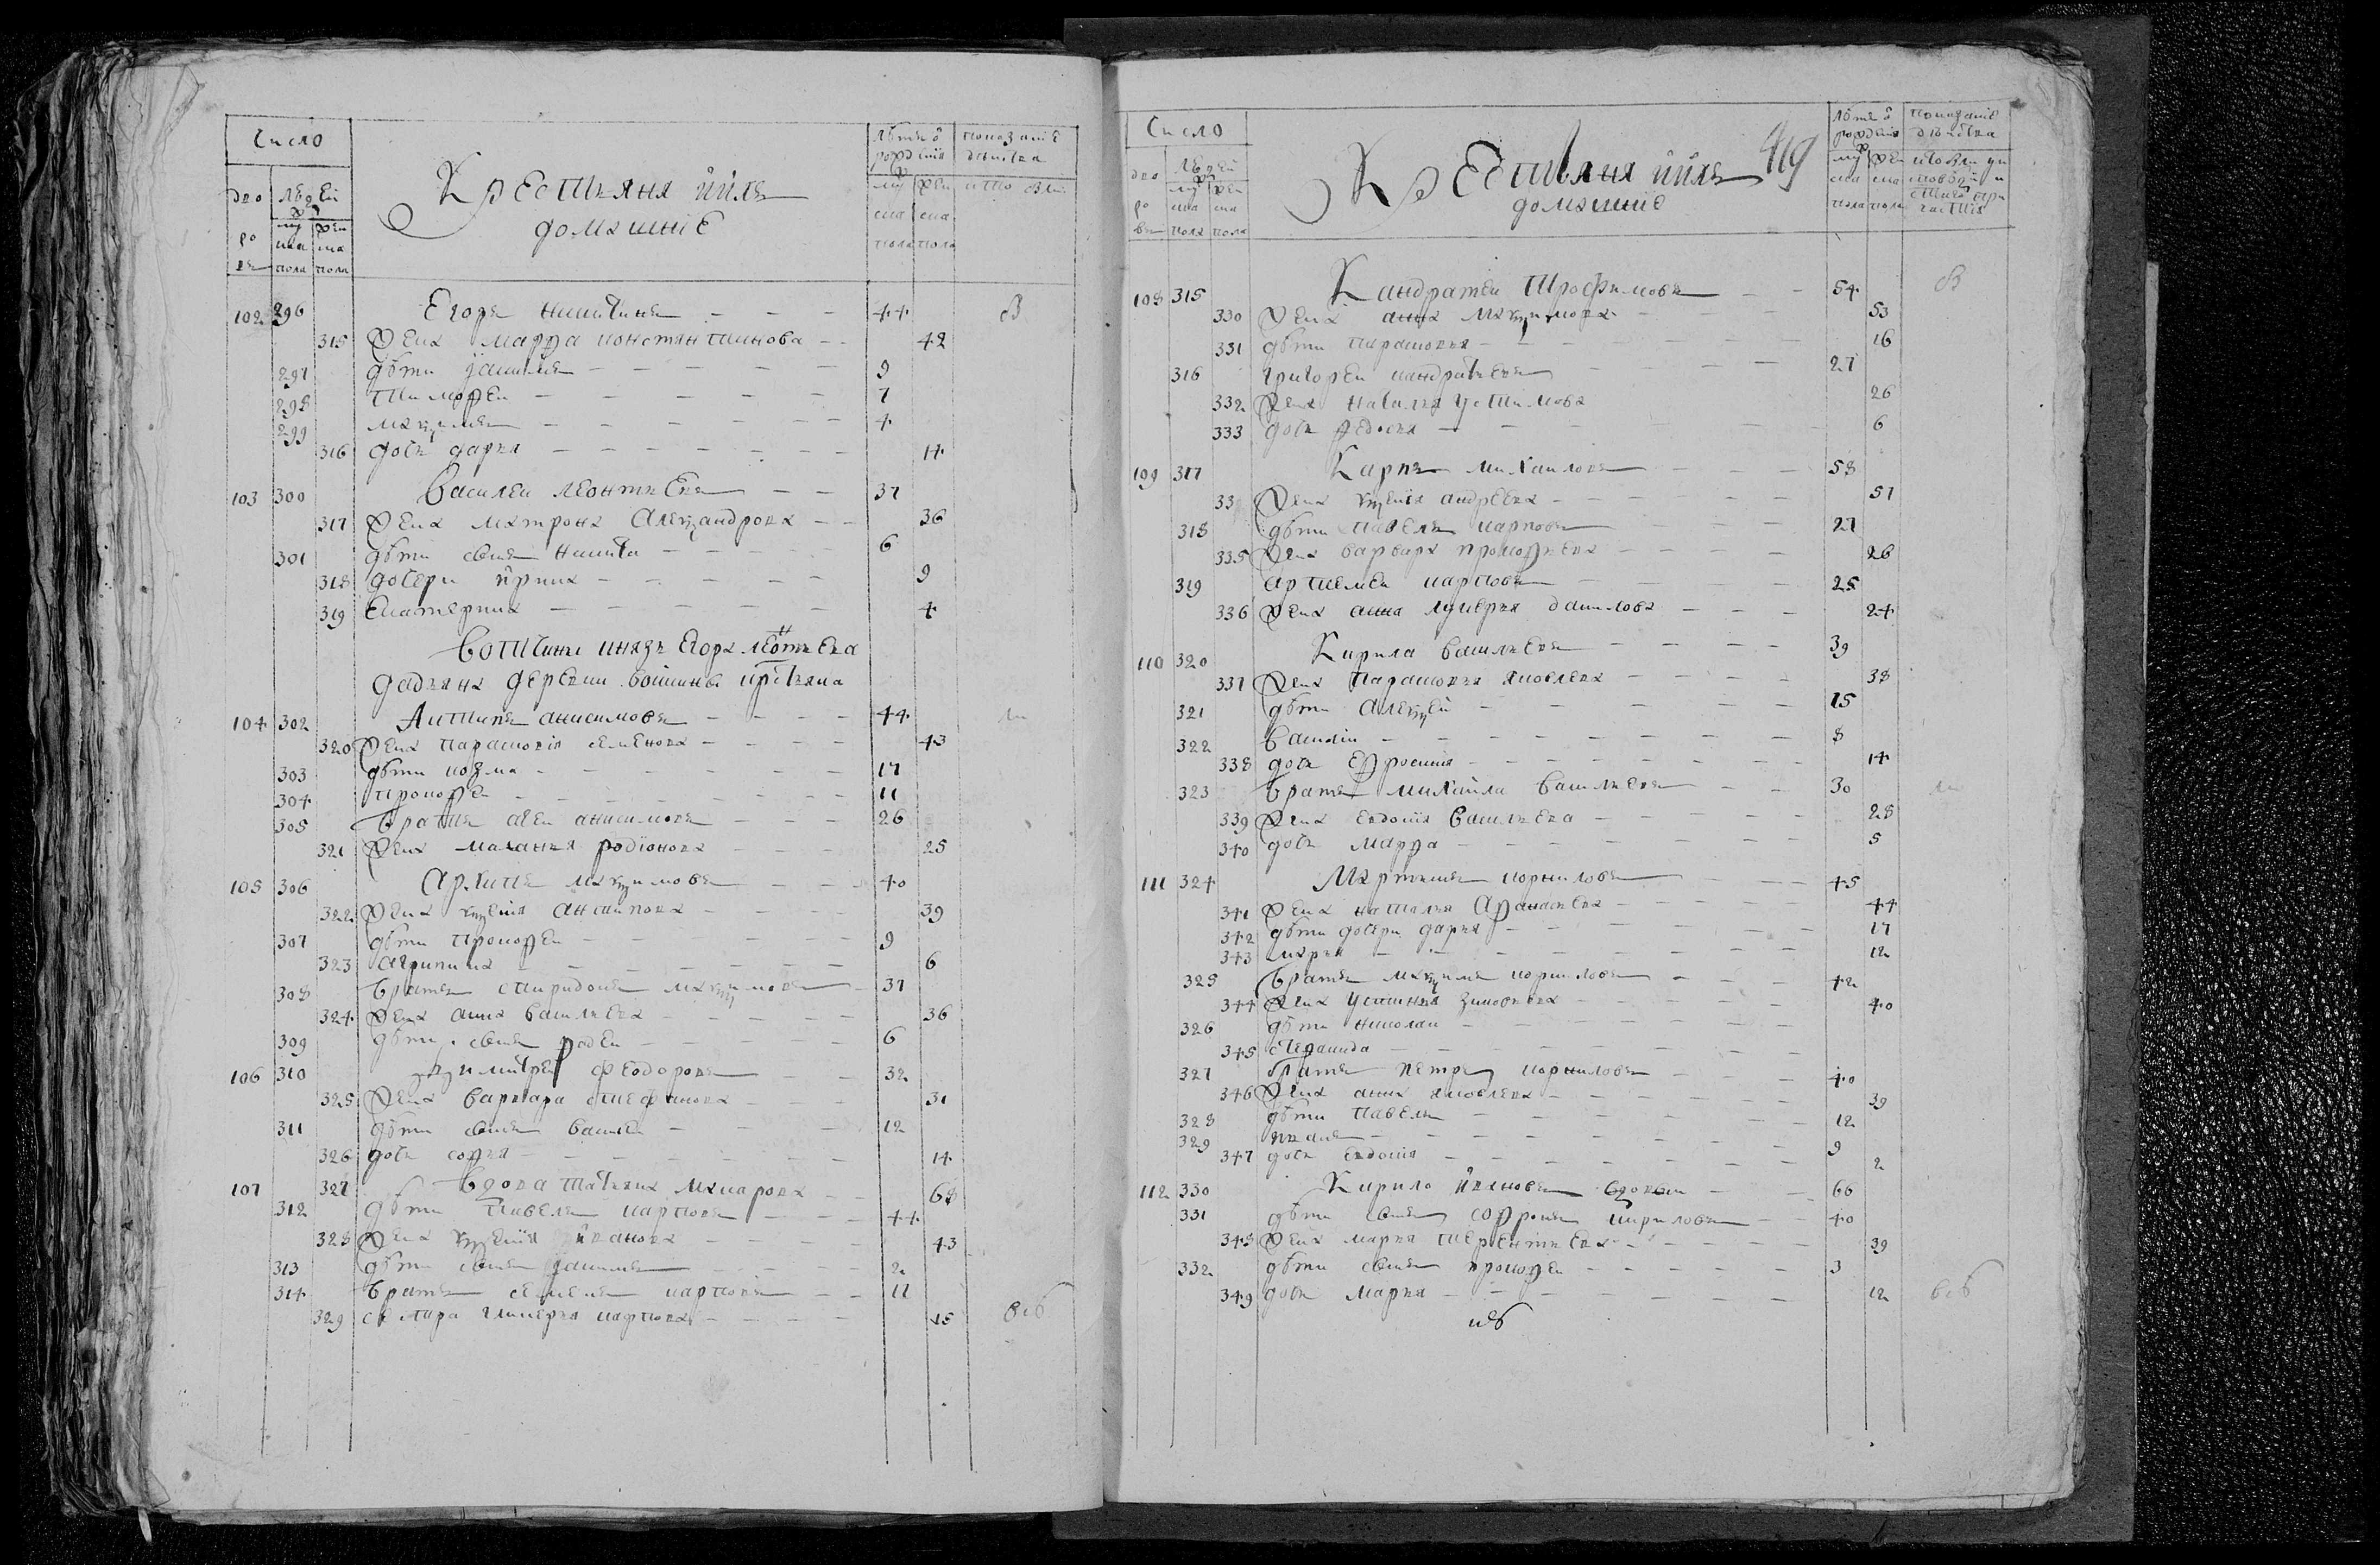 Число
Крестьяня ихъ
домашніе
лѣтъ ѿ рожденія
показаніе дѣиства
дворовъ людей
муска пола женска пола
муска пола женска пола
кто былъ
102 296 Егоръ никитинъ 44 в
315 жена марфа констянтинова 42
297 дѣти данила 9
298 тимофеи 7
299 максимъ 4
316 дочь дарья 14
103 300 Василеи леонтьевъ 37
317 жена матрона Александрова 36
301 дѣти сынъ никита 6
318 дочери ирина 9
319 Екатерина 4
вотчины князь Егора леонтьева
дадьяна деревни вошины крстьяна
104 302 Антипъ анисимовъ 44
320 жена парасковія семенова 43
303 дѣти козма 17
304 прокофеи 11
305 братъ агеи анисимовъ 26
321 жена маланья родіонова 25
105 306 Архипъ максимовъ 40
322 жена ксенія антипова 39
307 дѣти прокофеи 9
323 агрипина 6
308 братъ спиридонъ максимовъ 37
324 жена анна василиева 36
309 дѣти сынъ фадеи 6
106 310 димитреи феодоровъ 32
325 жена варвара стефанова 31
311 дѣти сынъ василеи 12
326 дочь софья 14
107 327 вдова татьяна макарова 68
312 дѣти павелъ карповъ 44
328 жена ксенія иванова 43
313 дѣти сынъ данила 2
314 братъ семенъ карповъ 11
329 сестара гликерья карпова 15

Число
Крестьяня ихъ 419
домашніе
лѣтъ ѿ рожденія
показаніе дѣиства
дворовъ людей
муска пола женска пола
муска пола женска пола
108 315 Кандратеи Трофимовъ 54 в
330 жена анна максимова 53
331 дѣти парасковья 16
316 григореи кандратьевъ 27
332 жена наталья устимова 26
333 дочь федосья 6
109 317 Карпъ михаиловъ 58
33 жена ксенія андреева 57
318 дѣти павелъ карповъ 27
335 жена варвара прокофьева 26
319 артемеи карповъ 25
336 жена анна лукерья данилова 24
110 320 Кирила василиевъ 39
337 жена парасковья яковлева 38
321 дѣти алексеи 15
322 василіи 8
338 дочь Ефросинія 14
323 братъ михаила василиевъ 30
339 жена евдокія василиева 28
340 дочь марфа 5
111 324 Мартинъ корниловъ 45
341 жена наталья Афанасьева 44
342 дѣти дочери дарья 17
343 марья 12
325 братъ максимъ корниловъ 42
344 жена устинья зиновьева 40
326 дѣти николаи
345 степанида
327 братъ петръ корниловъ 40
346 жена анна яковлева 39
328 дѣти павелъ 12
329 иванъ 9
347 дочь евдокія 2
112 330 Кирило ивановъ вдовыи 66
331 дѣти сынъ софронъ кириловъ 40
348 жена марья терентьева 39
332 дѣти сынъ прокофеи 3
349 дочь марья 12